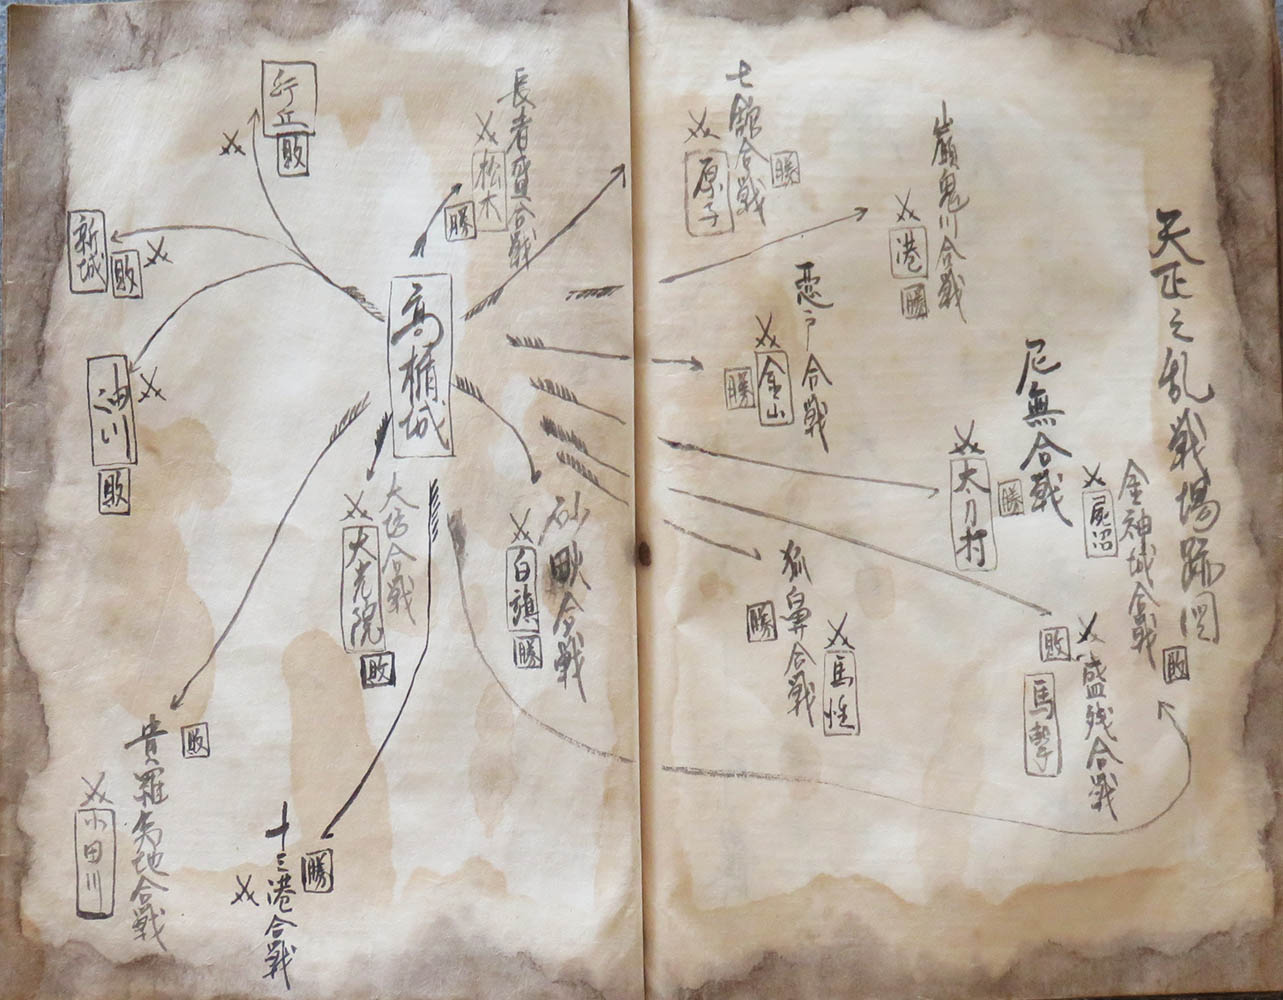 天正之乱戦場跡図
金神城合戦
尻沼
敗
盛残合戦
敗
馬撃
尼無合戦
太刀村
勝
巌鬼川合戦
港
勝
七館合戦
原子
勝
恋戸合戦
金山
勝
狐鼻合戦
勝
馬性
長者賀合戦
松木
勝
高楯城
砂畎合戦
白旗
勝
大坊合戦
大光院
敗
十三港合戦
勝
行丘
敗
新城
敗
油川
敗
貴羅夷地合戦
敗
小田川